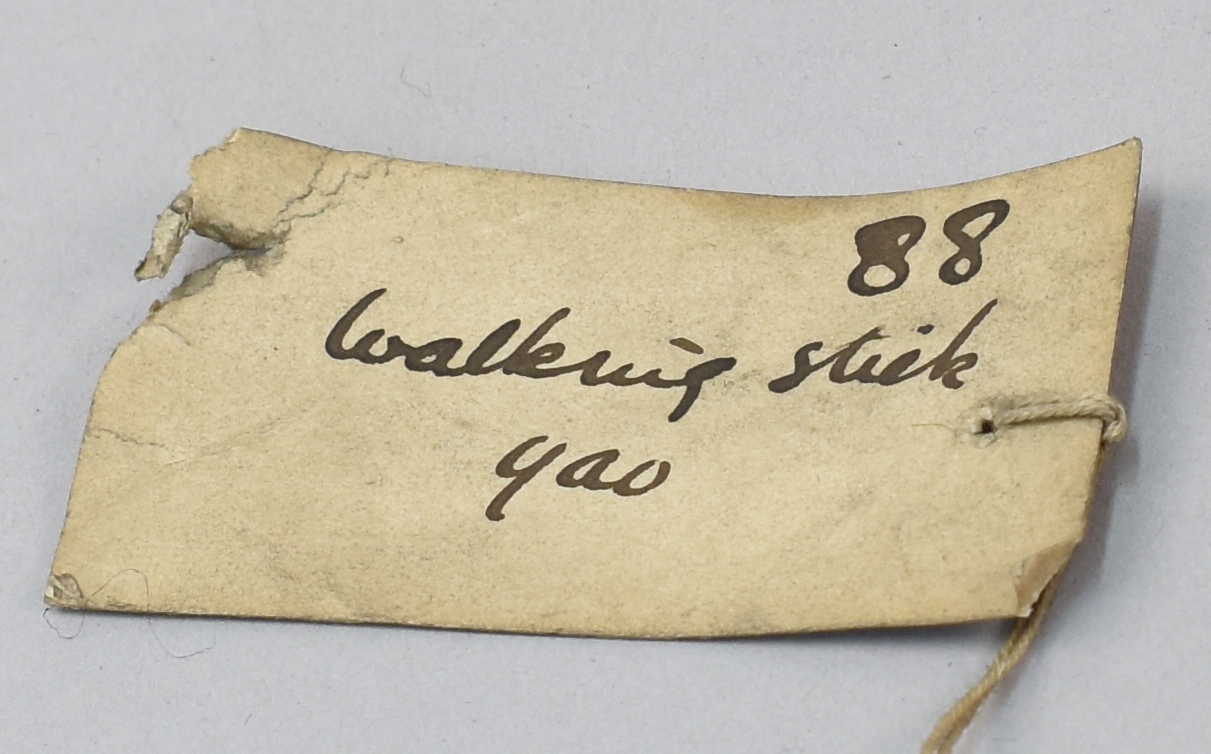 88
walking stick
yao